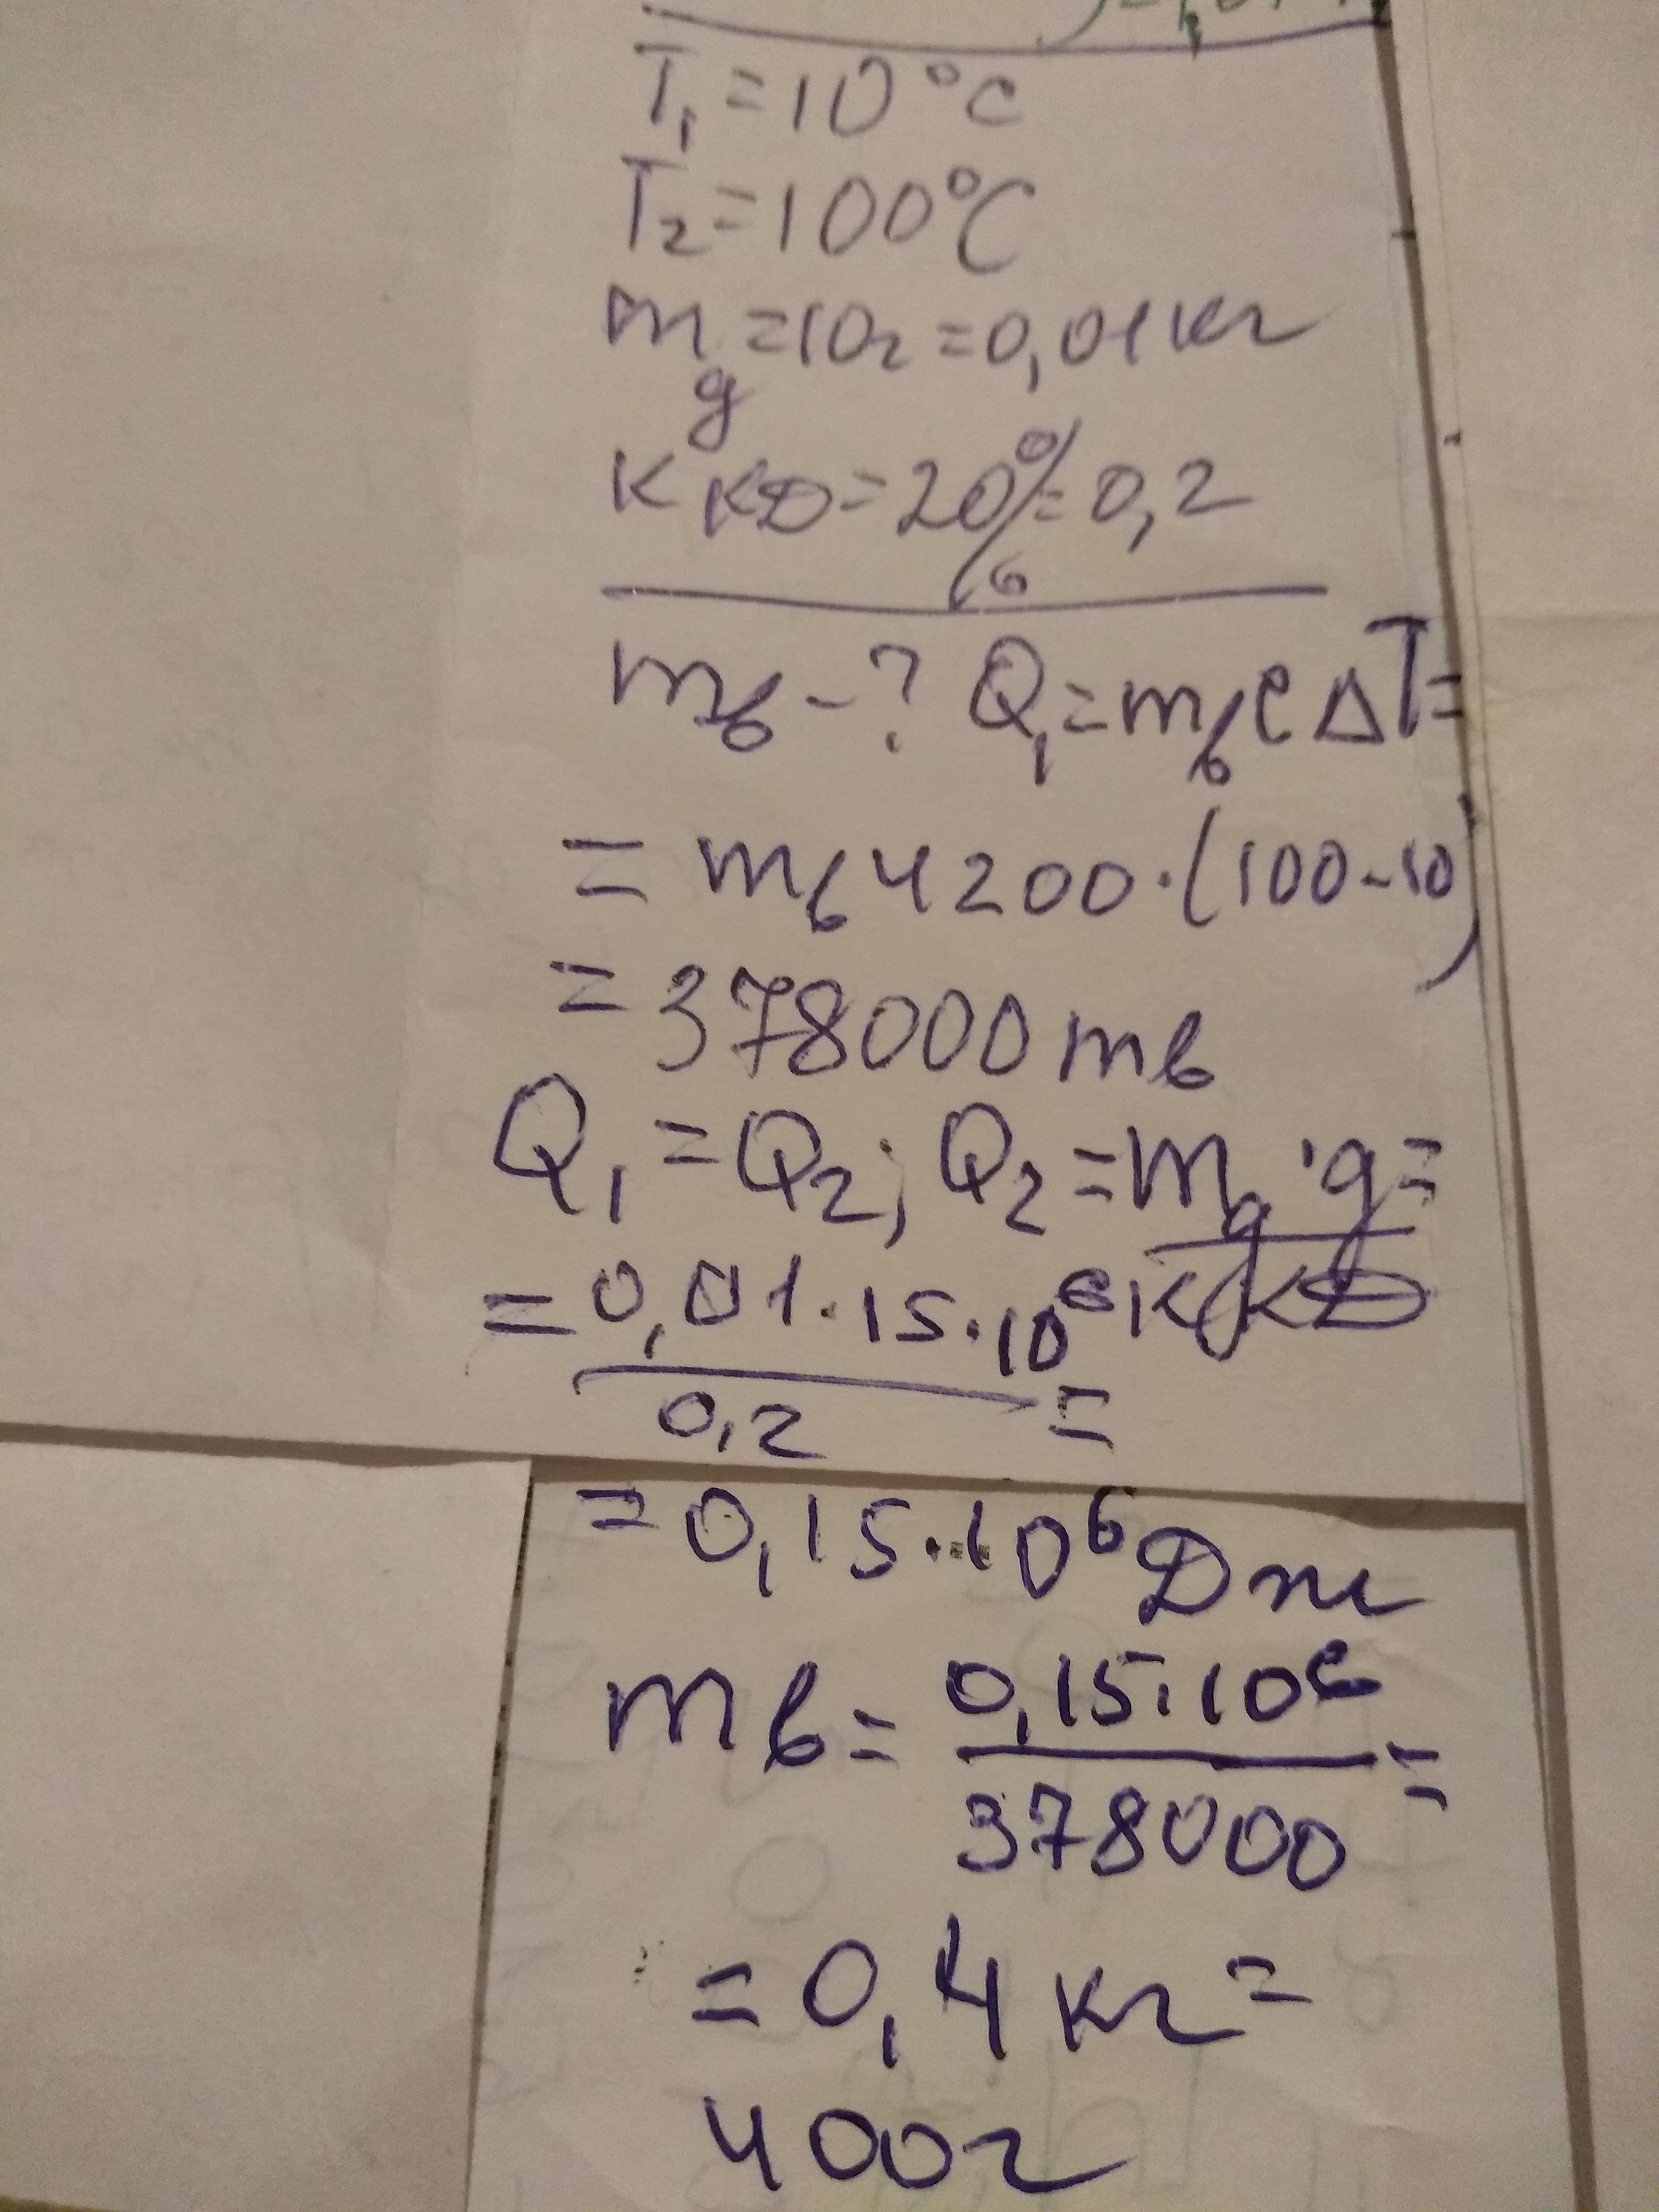 T₁ = 10°C
T₂ = 100°C
m g = 10г = 0,01 кг
ККД = 20% = 0,2
mв - ? Q₁ = mв c ΔT =
= mв 4200 · (100 - 10)
= 378000 mв
Q₁ = Q₂; Q₂ = mg · q =
ККД
= 0,01 · 15 · 10⁶
0,2 =
= 0,15 · 10⁶ Дж
mв = 0,15 · 10⁶
378000 =
= 0,4 кг =
400г